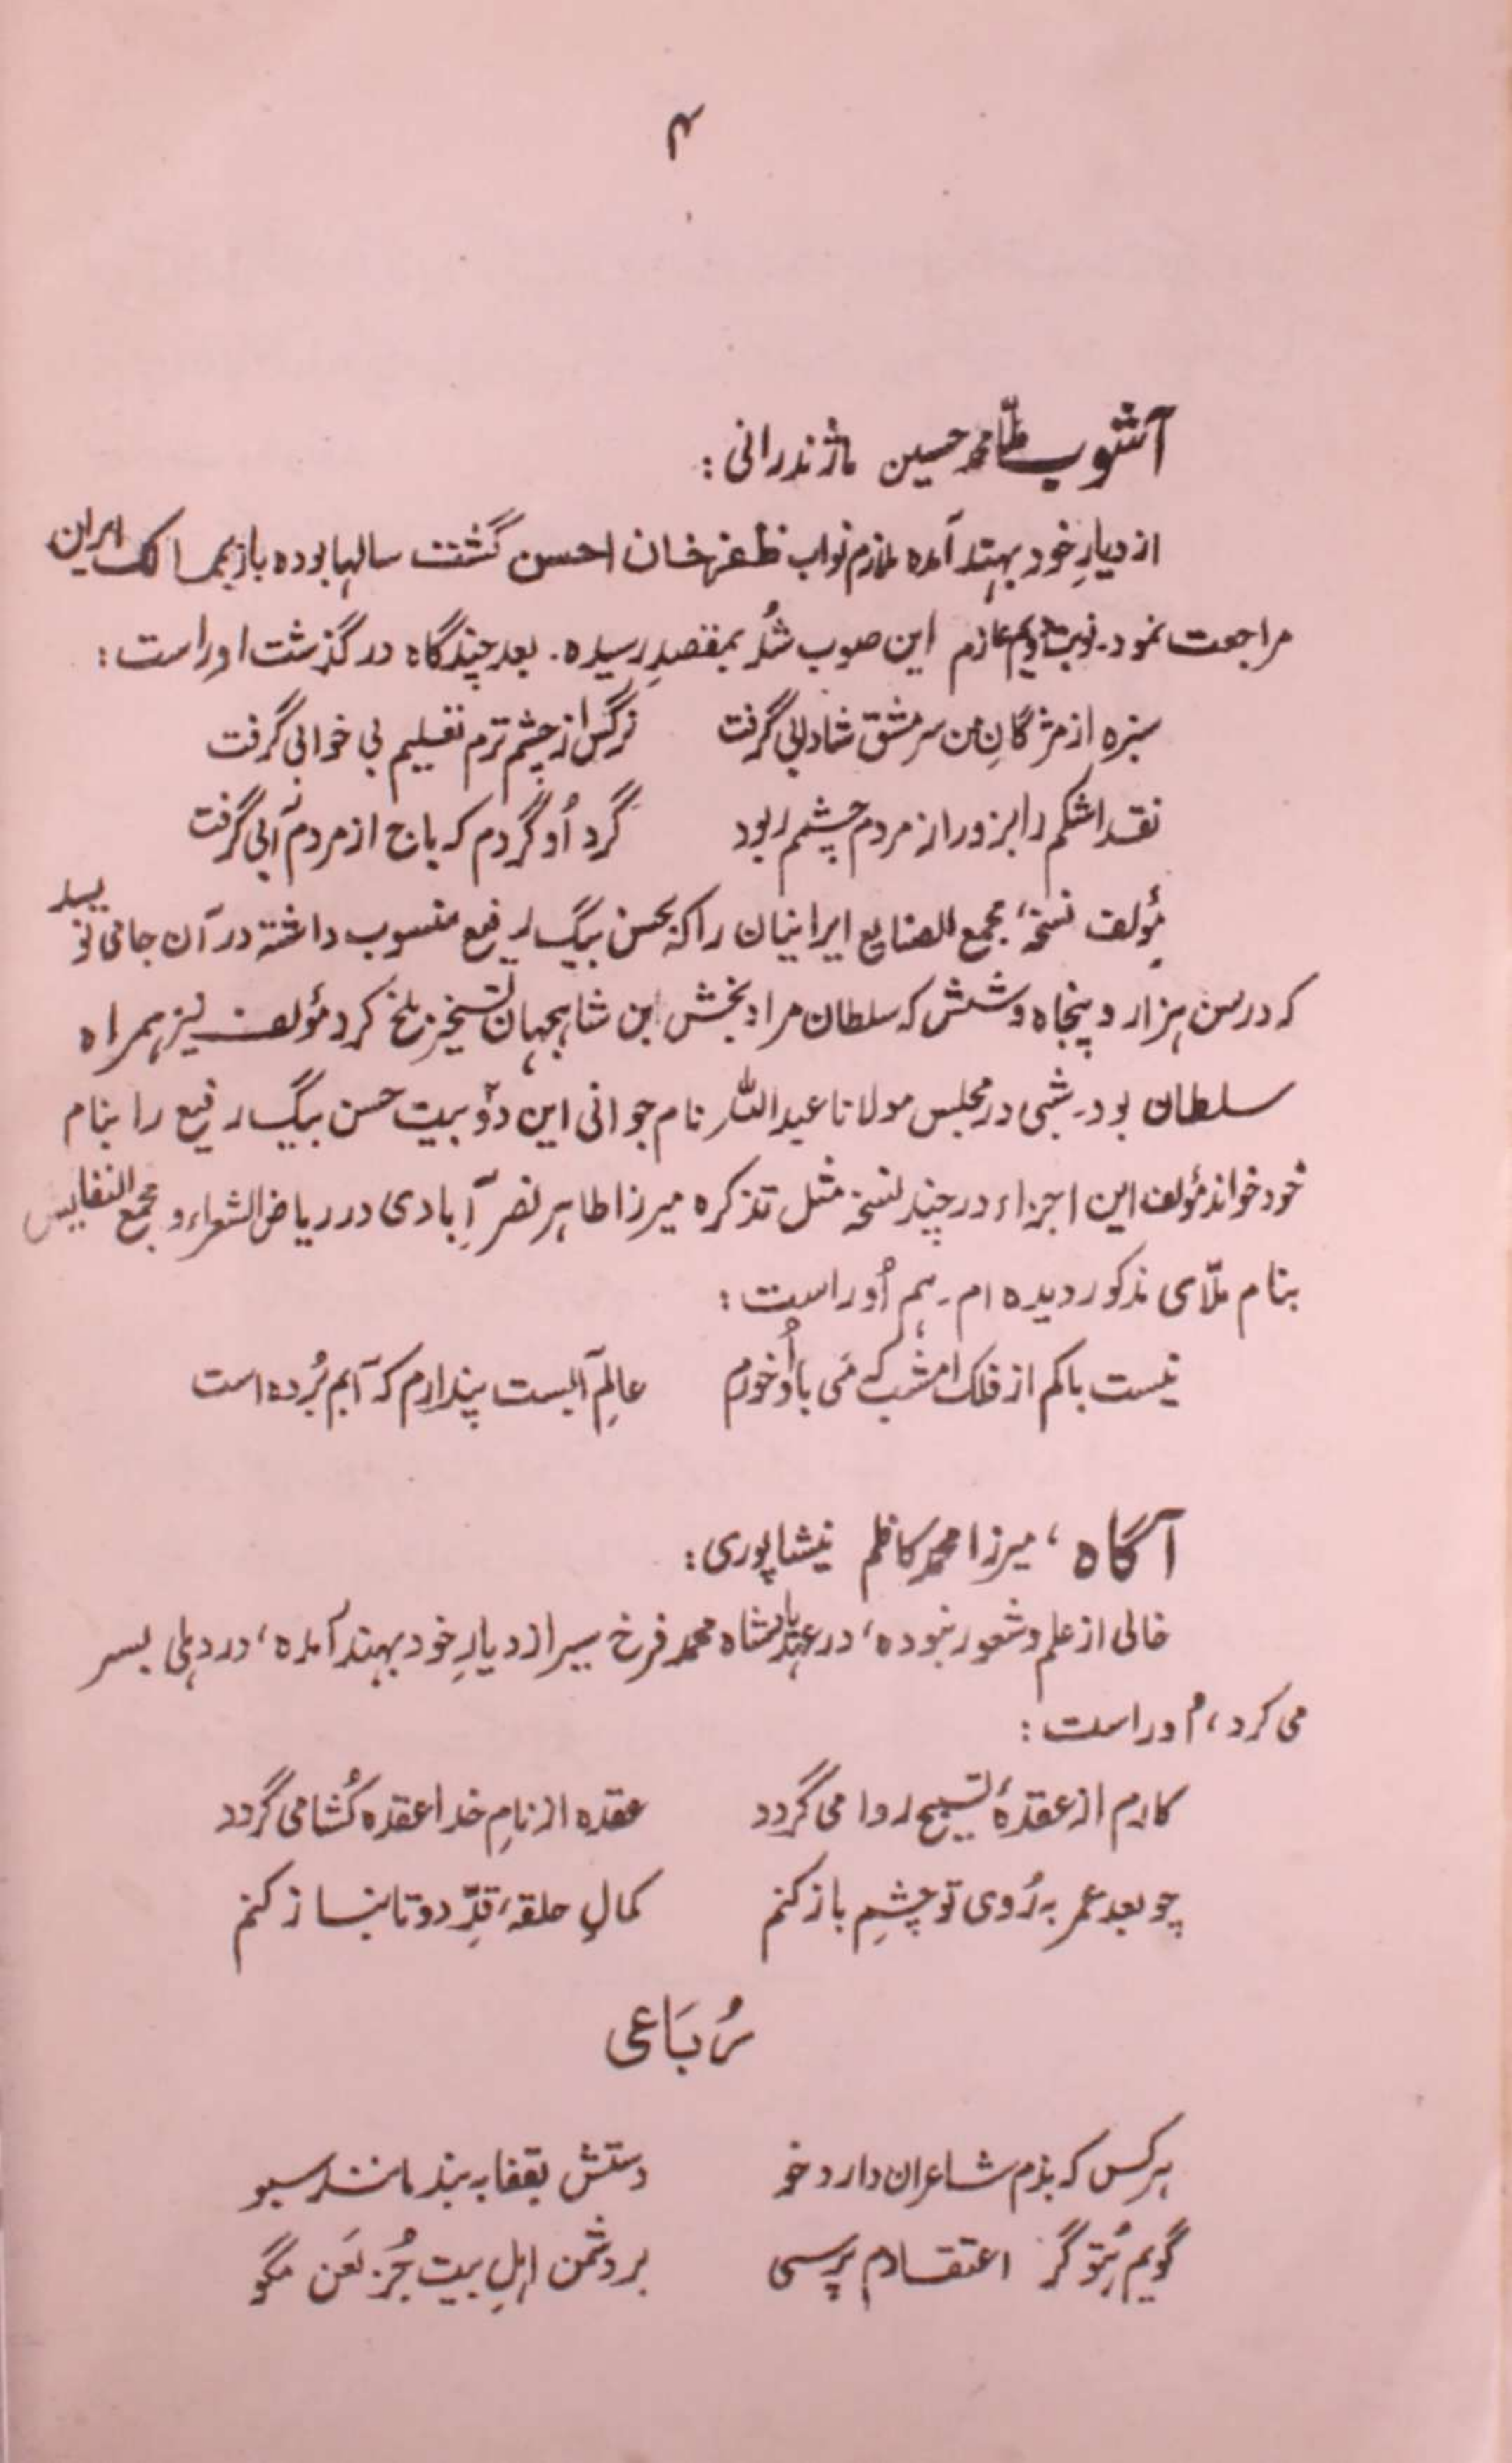 ۴
آشوب ملّا محمد حسین ماژندرانی :
از دیارِ خود بهند آمده ملازم نواب ظفر خان احسن گشت سالها بوده باز بممالک ایران
مراجعت نمود۔ نوبت دویم عازم این صوب شُد بمقصدِ رسیده. بعد چندگاه در گذشت اوراست :
سبزه از مژگانِ من سرمشق شادابی گرفت نرگس از چشم ترم تعلیم بی خوابی گرفت
نقد اشکم را بزور از مردم چشم ربود گرد اُو گردم که باج از مردم آبی گرفت
مؤلف نسخهٔ مجمع الصنایع ایرانیان را که بحسن بیگ رفیع منسوب داشته در آن جا می نویسد
که در سن هزار و پنجاه و شش که سلطان مراد بخش ابن شاهجهان تسخیر بلخ کرد مؤلف نیز همراه
سلطان بود۔ شبی در مجلس مولانا عبدالله نام جوانی این دو بیت حسن بیگ رفیع را بنام
خود خواند مؤلف این اجزاء در چند نسخه مثل تذکره میرزا طاهر نصر آبادی در ریاض الشعراء و مجمع النفایس
بنام ملّای مذکور دیده ام۔ هم اُوراست :
نیست باکم از فلک امشب که مَی با اُو خورم عالمِ آبست پندارم که آبم بُرده است
آگاه ، میرزا محمد کاظم نیشاپوری :
خالی از علم و شعور نبوده ، در عهد بادشاه محمد فرخ سیر از دیارِ خود بهند آمده ، در دهلی بسر
می کرد ، اُوراست :
کارم از عقدهٔ تسبیح روا می گردد عقده از نامِ خدا عقده کُشا می گردد
چو بعد عمر به رُوی تو چشمِ باز کنم کمالِ حلقهٔ قدِّ دوتا نیاز کنم
رُبَاعی
هر کس که بذم شاعران دارد خو دستش بقفا به بند مانند سبو
گویم بُتو گر اعتقادم پرسی بر دشمن اهلِ بیت جُز لَعن مگو